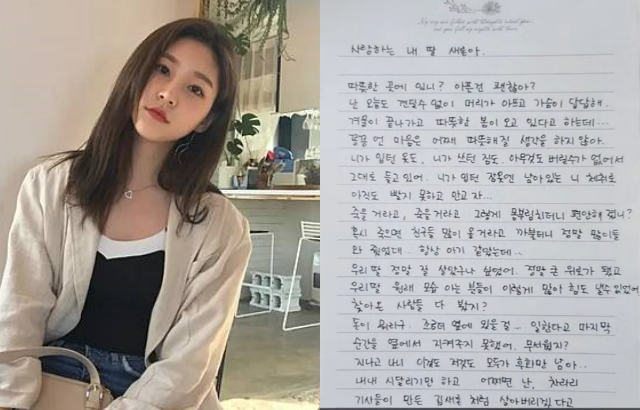 사랑하는 내 딸 새론아.
따뜻한 곳에 있니? 아픈건 괜찮아?
난 오늘도 견딜수 없이 머리가 아프고 가슴이 답답해.
겨울이 끝나가고 따뜻한 봄이 오고 있다고 하는데...
꽁꽁 언 마음은 어째 따뜻해질 생각을 하지 않아.
니가 입던 옷도, 니가 쓰던 짐도 아무것도 버릴수가 없어서
그대로 들고 있어. 니가 입던 잠옷엔 남아있는 니 체취로
아직도 빨지 못하고 안고 자...
죽을 거라고, 죽을거라고 그렇게 몸부림치더니 편안해졌니?
혹시 죽으면 친구들 많이 올거라고 까불더니 정말 많이들
와 줬었대.. 항상 아기 같았는데...
우리딸 정말 잘 살았구나 싶었어. 정말 큰 위로가 됐고
우리딸 원래 모습 아는 분들이 이렇게 많아 힘도 낼수 있었어
찾아온 사람들 다 봤지?
돈이 뭐라구. 조금더 옆에 있을 걸~ 일한다고 마지막
순간을 옆에서 지켜주지 못했어. 무서웠지?
지나고 나니 이것도 저것도 모두가 후회만 남아..
내내 시달리기만 하고 어쩌면 난, 차라리
기사들이 만든 김새론 처럼 살아버리겠다고